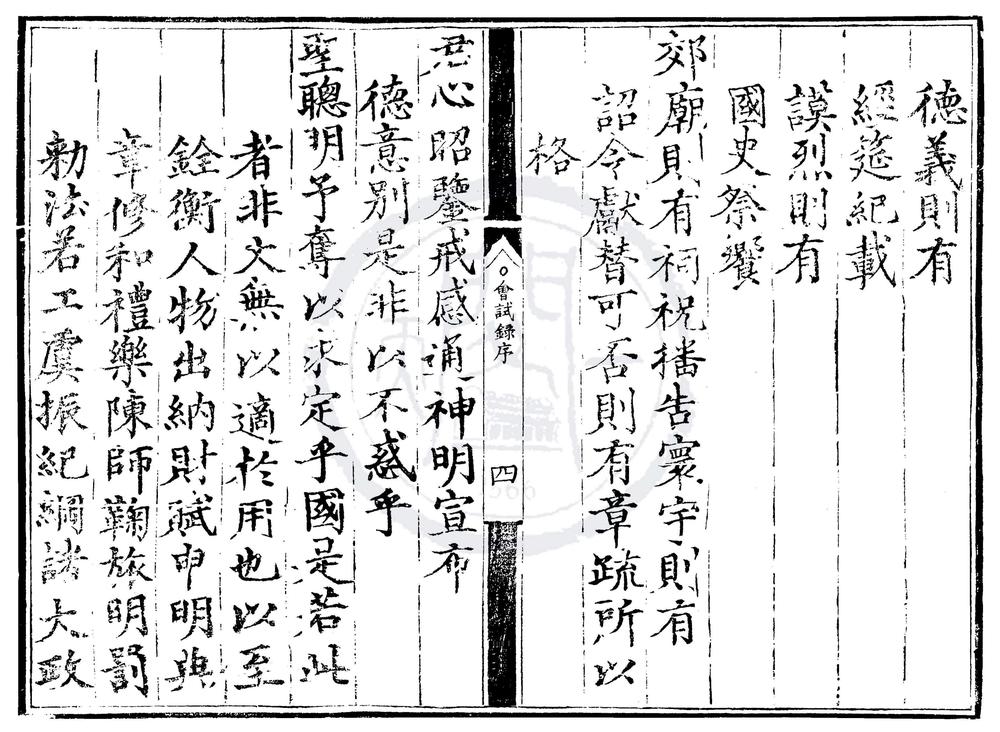 德義則有
經筵紀載
謨烈則有
國史祭饗
郊廟則有祠祝播告寰宇則有
詔令獻替可否則有章疏所以
格
會試錄序
四
君心昭鑒戒感通神明宣布
德意別是非以不惑乎
聖聰明予奪以求定乎國是若此
者非文無以適於用也以至
銓衡人物出納財賦申明典
章修和禮樂陳師鞠旅明罰
勅法若工虞振紀綱諸大政